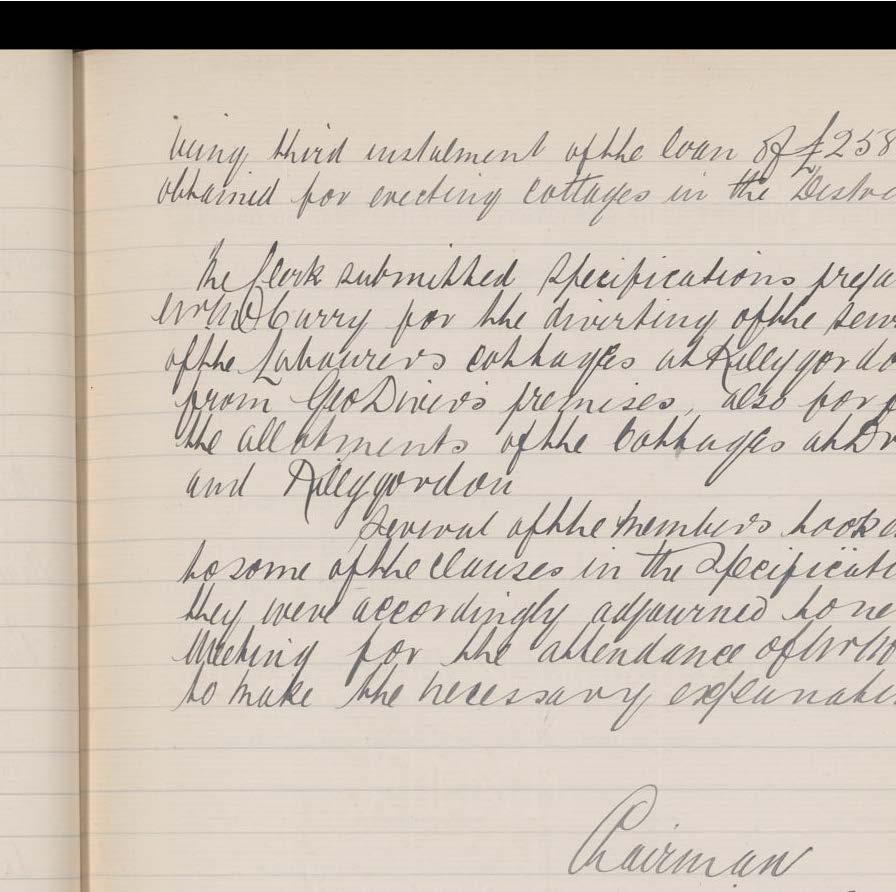 being third instalment of the loan of £258
obtained for erecting cottages in the Distr
The Clerk submitted Specifications prepa
Curry for the diverting of the sew
of the Labourers cottages at Killygordo
from Geo Diver's premises, also for
the allotments of the Cottages at Dr
and Killygordon
Several of the members took
to some of the clauses in the Specificati
they were accordingly adjourned to ne
Meeting for the attendance of Mr Mc
to make the necessary explanati
Chairman